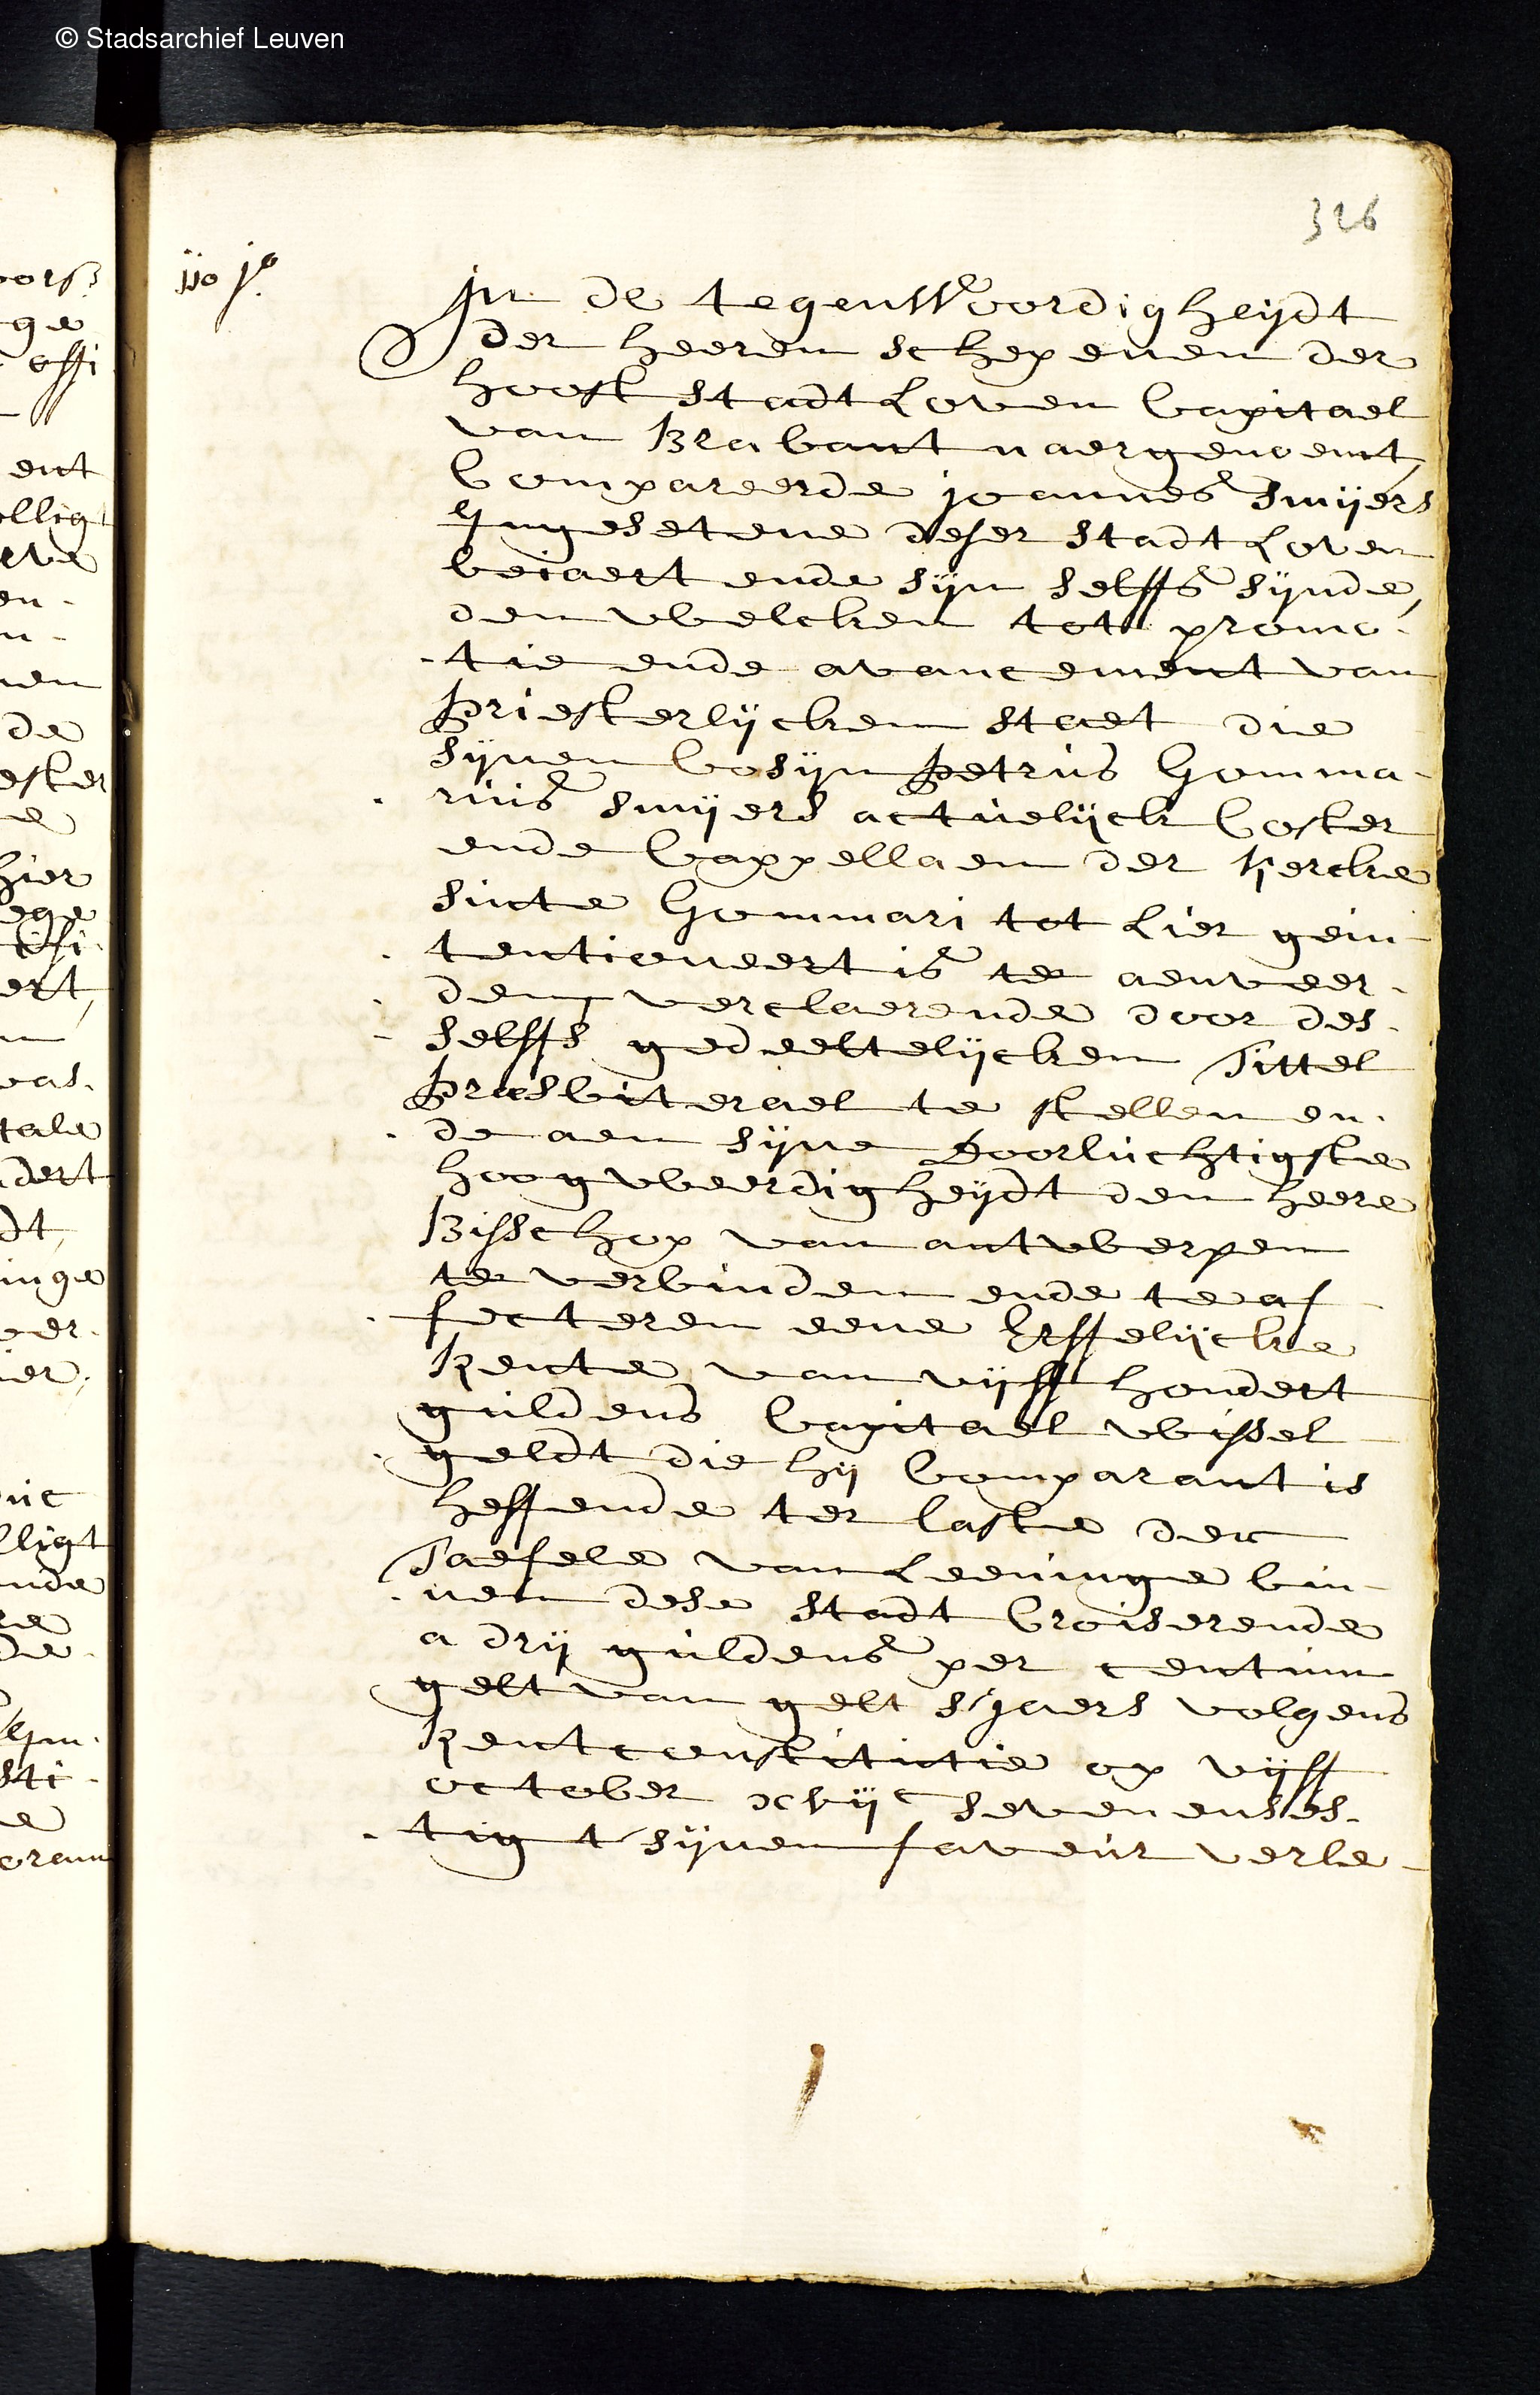 © Stadsarchief Leuven
326
jn de tegenWoordigheijdt
der heeren schepenen der
hooft stadt Loven Capitael
van Brabant naergenoemt,
Compareerde joannes smijers
Jngesetene deser stadt Loven
beiaert ende sijn selffs sijnde,
den welcken tot promo-
-tie ende avancement van
Priesterlijcken staet die
sijnen Cosijn Petrus Gomma-
-rius smijers actuelijck Coster
ende Cappellaen der kercke
sinte Gommari tot Lier gein-
-tentioneert is te aenveer-
-den, verclaerende door des-
-selffs gedeeltelijcken Tittel
Presbiterael te stellen en-
-de aen sijne Doorluchtigste
hoogweerdigheijdt den heere
Bisschop van antwerpen
te verbinden ende te af-
-fecteren eene Erffelijcke
Rente van vijff hondert
guldens Capitael wissel
-geldt die hij Comparant is
heffende ter laste der
Taefele van Leeninge bin-
-nen dese stadt Croiserende
a drij guldens per centum
gelt van gelt s'jaers volgens
Rentconstitutie op vijff
october xvijc sevenensses-
-tig t'sijnen faveur verle-